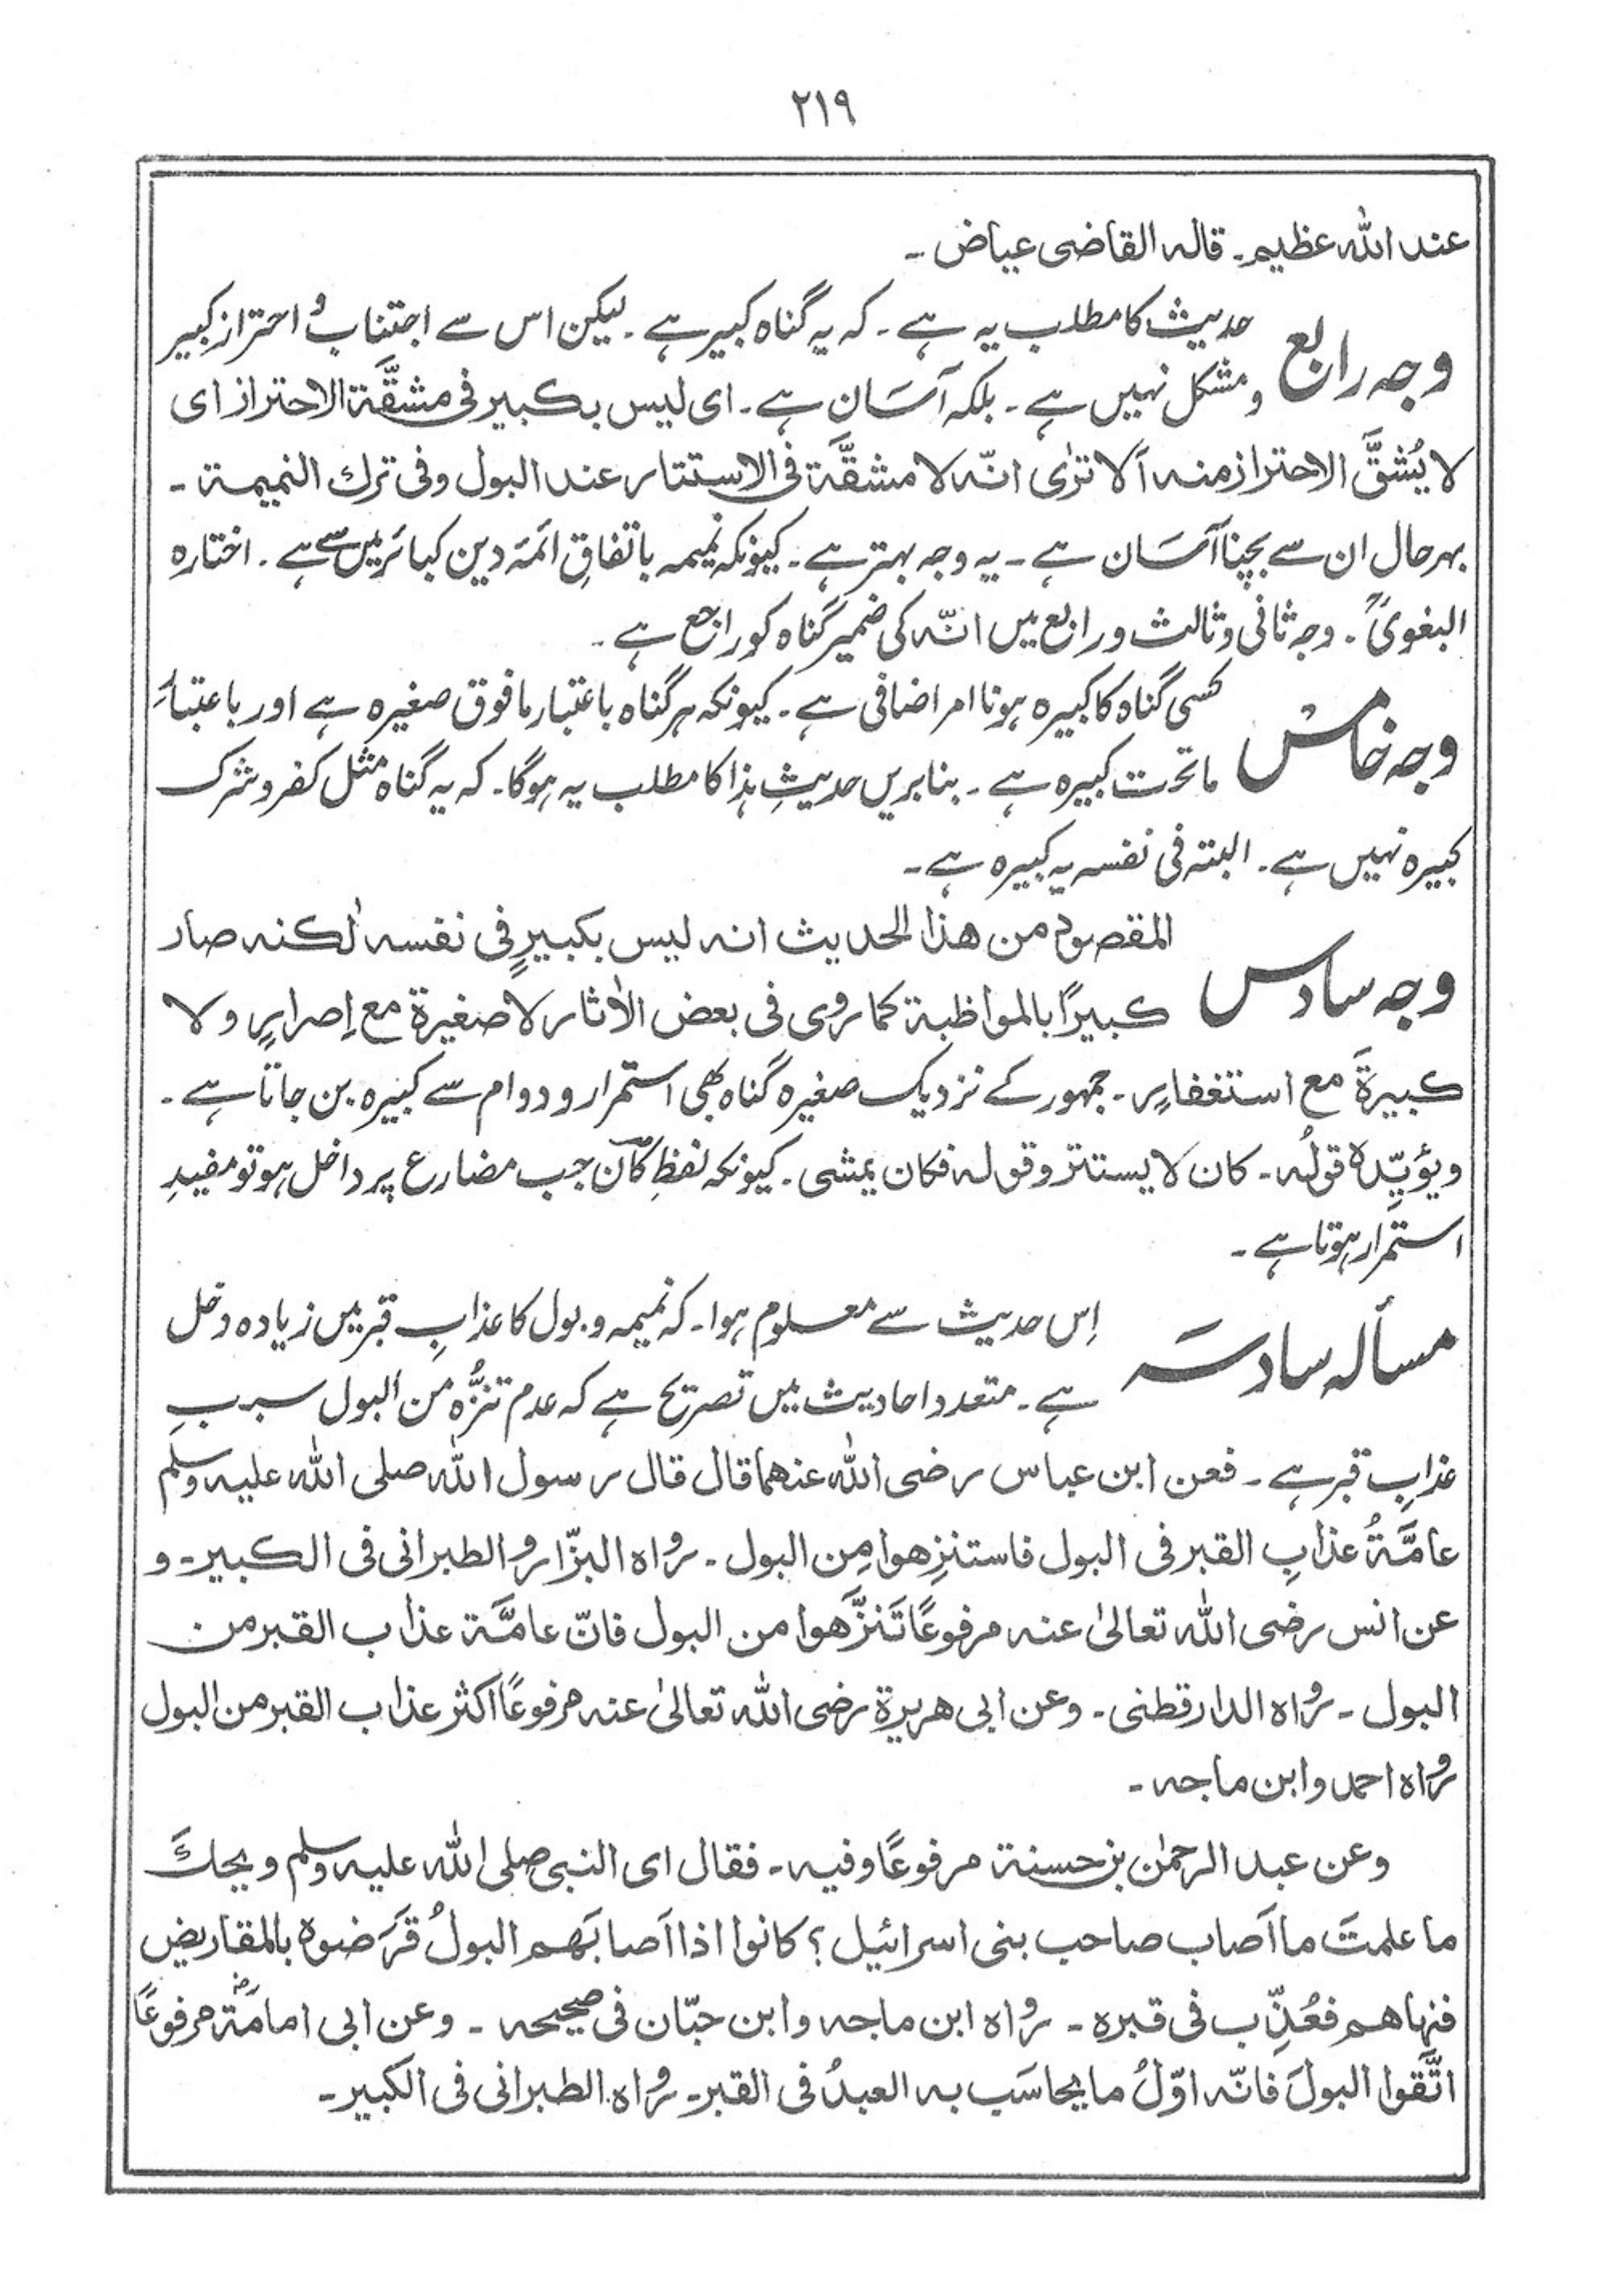 ۲۱۹
عند اللہ عظیم۔ قالہ القاضی عیاض ۔
وجہ رابع حدیث کا مطلب یہ ہے ۔ کہ یہ گناہ کبیر ہے ۔ لیکن اس سے اجتناب و احتراز کبیر
و مشکل نہیں ہے ۔ بلکہ آسَان ہے ۔ ای لیس بکبیر فی مشقَّۃ الاحتراز ای
لا یُشقَّ الاحتراز منہ اَلا ترٰی انّہ لا مشقَّۃ فی الاستتار عند البول وفی ترك النمیمۃ ۔
بہر حال ان سے بچنا آسَان ہے ۔ یہ وجہ بہتر ہے ۔ کیونکہ نمیمہ باتفاقِ ائمۂ دین کبائر میں سے ہے ۔ اختارہ
البغویؒ ۔ وجہ ثانی و ثالث و رابع میں انّہ کی ضمیر گناہ کو راجع ہے ۔
وجہ خامس کسی گناہ کا کبیرہ ہونا امر اضافی ہے ۔ کیونکہ ہر گناہ باعتبار مافوق صغیرہ ہے اور باعتبار
ماتحت کبیرہ ہے ۔ بنا بریں حدیثِ ہٰذا کا مطلب یہ ہوگا ۔ کہ یہ گناہ مثل کفر و شرک
کبیرہ نہیں ہے ۔ البتہ فی نفسہ یہ کبیرہ ہے ۔
وجہ سادس المقصود من ھذا الحدیث انہ لیس بکبیرٍ فی نفسہ لٰکنہ صار
کبیرًا بالمواظبۃ کما روی فی بعض الاٰثار لا صغیرۃ مع اِصرارٍ ولا
کبیرۃَ مع استغفارٍ ۔ جمہور کے نزدیک صغیرہ گناہ بھی استمرار و دوام سے کبیرہ بن جاتا ہے ۔
ویؤیّدہ قولُہ ۔ کان لا یستتر وقولہ فکان یمشی ۔ کیونکہ لفظِ کَانَ جب مضارع پر داخل ہو تو مفیدِ
استمرار ہوتا ہے ۔
مسألہ سادسہ اِس حدیث سے معلوم ہوا ۔ کہ نمیمہ و بول کا عذابِ قبر میں زیادہ دخل
ہے ۔ متعدد احادیث میں تصریح ہے کہ عدم تنزُّہ من البول سببِ
عذابِ قبر ہے ۔ فعن ابن عباس رضی اللہ عنھما قال قال رسول اللہ صلی اللہ علیہ وسلم
عامَّۃُ عذابِ القبر فی البول فاستنزِھوا مِن البول ۔ رواہ البزّار و الطبرانی فی الکبیر ۔ و
عن انس رضی اللہ تعالیٰ عنہ مرفوعًا تَنزَّھوا من البول فانّ عامَّۃ عذاب القبر من
البول ۔ رواہ الدارقطنی ۔ وعن ابی ھریرۃ رضی اللہ تعالیٰ عنہ مرفوعًا اکثر عذاب القبر من البول
رواہ احمد وابن ماجہ ۔
وعن عبد الرحمٰن بن حسنۃ مرفوعًا وفیہ ۔ فقال ای النبی صلی اللہ علیہ وسلم ویحكَ
ما علمتَ ما اَصاب صاحب بنی اسرائیل ؟ کانوا اذا اَصابَھم البولُ قرَضوہ بالمقاریض
فنھاھم فعُذِّب فی قبرہ ۔ رواہ ابن ماجہ وابن حبّان فی صحیحہ ۔ وعن ابی امامۃؓ مرفوعًا
اتَّقوا البولَ فانّہ اوّلُ ما یحاسَب بہ العبدُ فی القبر ۔ رواہ الطبرانی فی الکبیر ۔